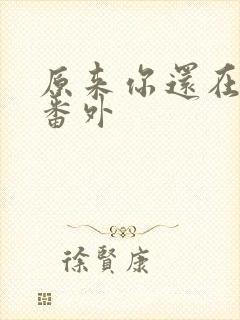 原来你還在
番外
徐賢康